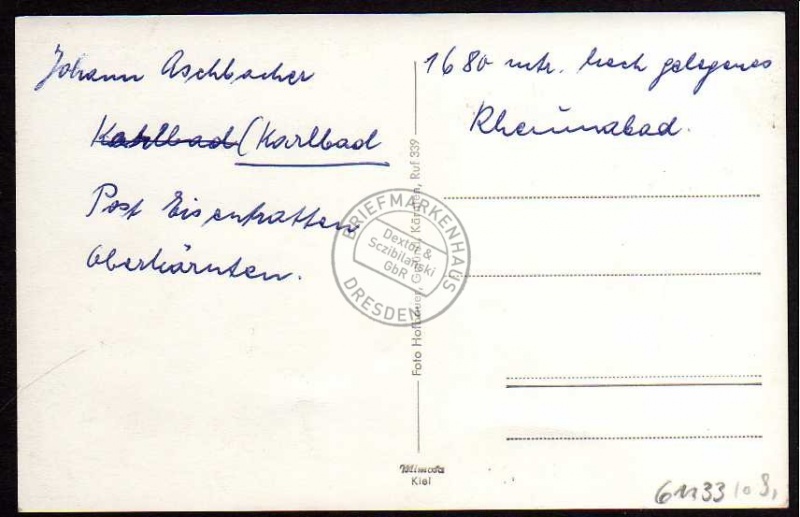 Johann Aschbacher
Kahlbad (Karlbad
Post Eisentratten
Oberkärnten.
1680 mtr. hoch gelegenes
Rheumabad.
BRIEFMARKENHAUS
Dextor &
Sczibilanski
GbR
DRESDEN
Foto Hofbauer, Gmünd, Kärnten, Ruf 339
Mimosa
Kiel